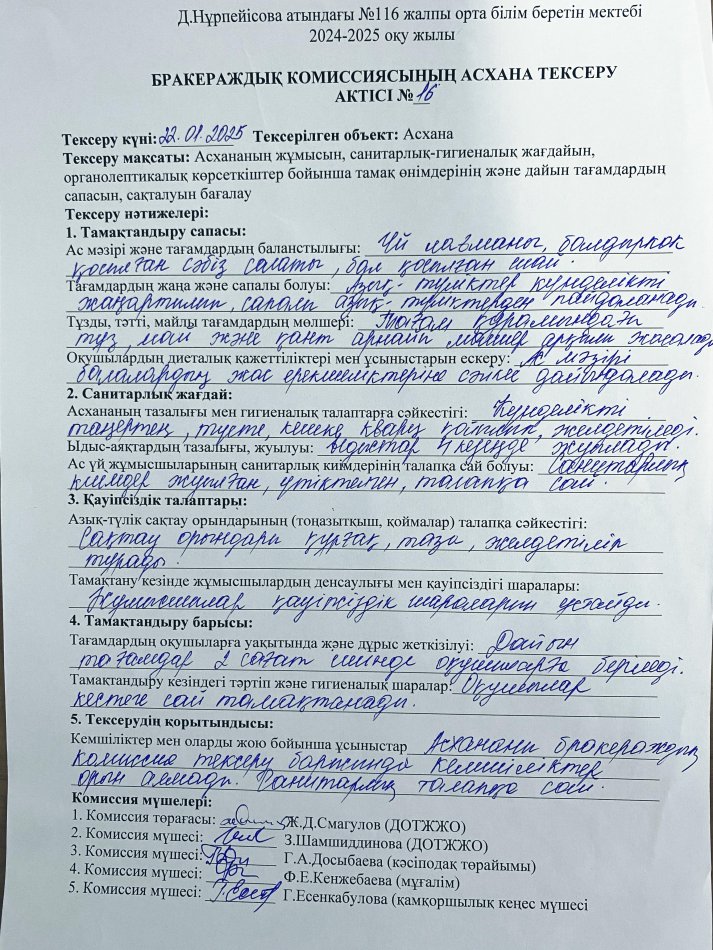 Д.Нұрпейісова атындағы №116 жалпы орта білім беретін мектебі
2024-2025 оқу жылы
БРАКЕРАЖДЫҚ КОМИССИЯСЫНЫҢ АСХАНА ТЕКСЕРУ
АКТІСІ № 16
Тексеру күні: 22.01.2025 Тексерілген объект: Асхана
Тексеру мақсаты: Асхананың жұмысын, санитарлық-гигиеналық жағдайын,
органолептикалық көрсеткіштер бойынша тамақ өнімдерінің және дайын тағамдардың
сапасын, сақталуын бағалау
Тексеру нәтижелері:
1. Тамақтандыру сапасы:
Ас мәзірі және тағамдардың баланстылығы: Үй лағманы, балдыркөк
қосылған сәбіз салаты, бал қосылған шай.
Тағамдардың жаңа және сапалы болуы: Азық-түліктер күнделікті
жаңартылып, сапалы азық-түліктерден пайдаланады.
Тұзды, тәтті, майлы тағамдардың мөлшері: Тағам құрамындағы
тұз, май және қант арнайы мөлшер арқылы жасалады
Оқушылардың диеталық қажеттіліктері мен ұсыныстарын ескеру: Ас мәзірі
балалардың жас ерекшеліктеріне сәйкес дайындалады.
2. Санитарлық жағдай:
Асхананың тазалығы мен гигиеналық талаптарға сәйкестігі: Күнделікті
таңертең, түсте, кешке кварц қойылып, желдетіледі.
Ыдыс-аяқтардың тазалығы, жуылуы: Ыдыстар 4 кезеңде жуылады.
Ас үй жұмысшыларының санитарлық киімдерінің талапқа сай болуы: Санитарлық
киімдер жуылған, үтіктелген, талапқа сай.
3. Қауіпсіздік талаптары:
Азық-түлік сақтау орындарының (тоңазытқыш, қоймалар) талапқа сәйкестігі:
Сақтау орындары құрғақ, таза, желдетіліп
тұрады.
Тамақтану кезінде жұмысшылардың денсаулығы мен қауіпсіздігі шаралары:
Жұмысшылар қауіпсіздік шараларын ұстайды.
4. Тамақтандыру барысы:
Тағамдардың оқушыларға уақытында және дұрыс жеткізілуі: Дайын
тағамдар 2 сағат ішінде оқушыларға беріледі.
Тамақтандыру кезіндегі тәртіп және гигиеналық шаралар: Оқушылар
кестеге сай тамақтанады.
5. Тексерудің қорытындысы:
Кемшіліктер мен оларды жою бойынша ұсыныстар Асхананы бракераждық
комиссия тексеру барысында кемшіліктер
орын алмады. Санитарлық талапқа сай.
Комиссия мүшелері:
1. Комиссия төрағасы: Ж.Д.Смагулов (ДОТЖЖО)
2. Комиссия мүшесі: З.Шамшиддинова (ДОТЖЖО)
3. Комиссия мүшесі: Г.А.Досыбаева (кәсіподақ төрайымы)
4. Комиссия мүшесі: Ф.Е.Кенжебаева (мұғалім)
5. Комиссия мүшесі: Г.Есенкабулова (қамқоршылық кеңес мүшесі